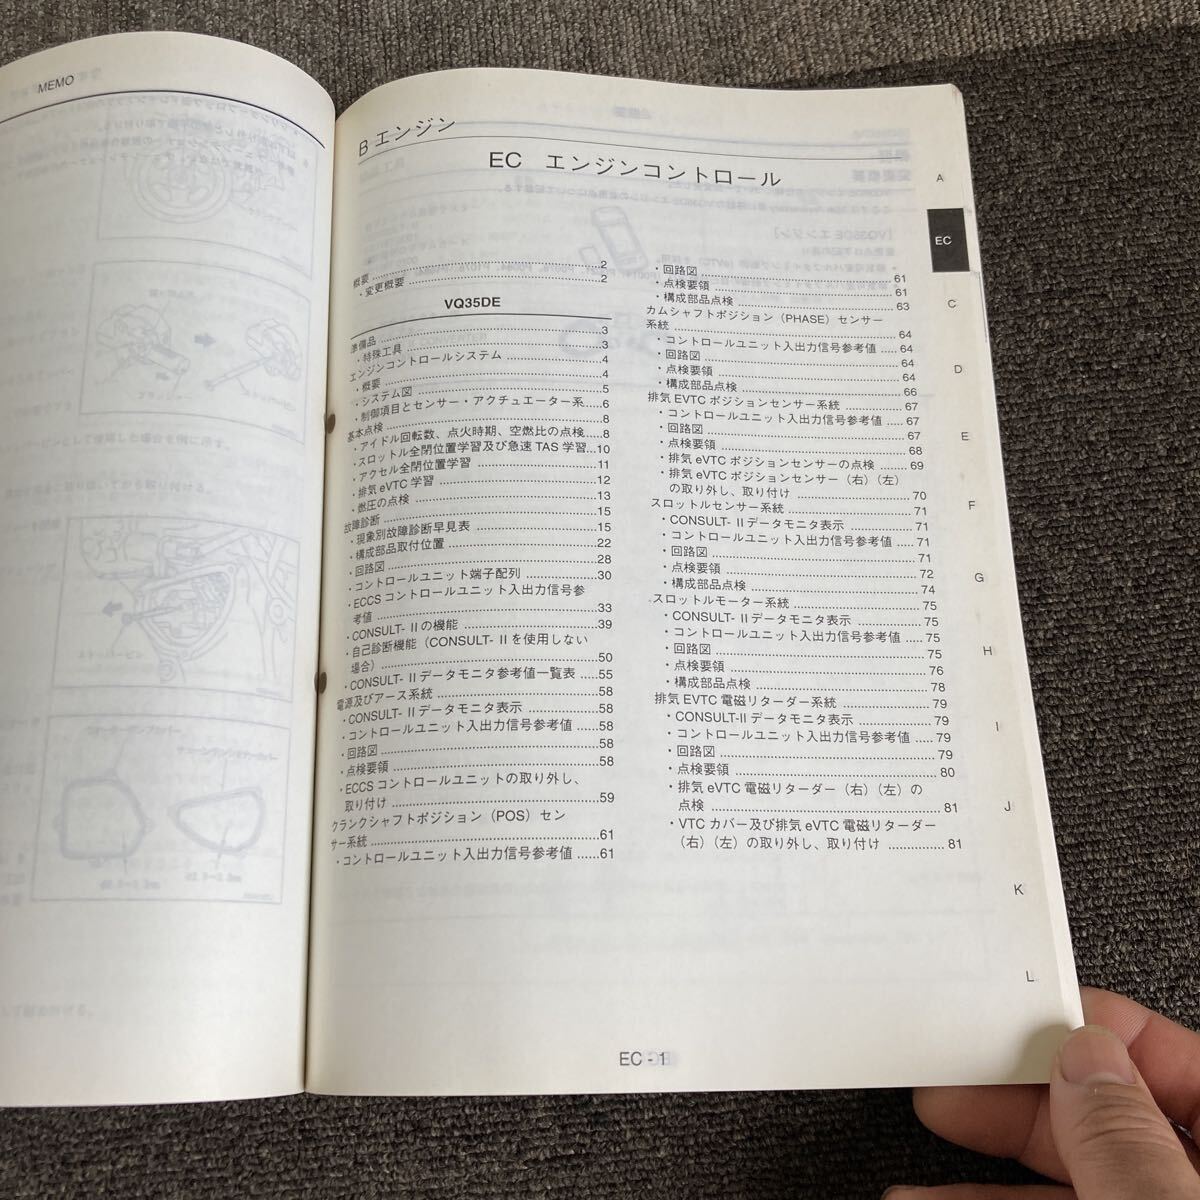 MEMO
B エンジン
EC エンジンコントロール
概要 2
・変更概要 2
VQ35DE
準備品 3
・特殊工具 3
エンジンコントロールシステム 4
・概要 4
・システム図 5
・制御項目とセンサー・アクチュエーター系 6
基本点検 8
・アイドル回転数、点火時期、空燃比の点検 8
・スロットル全閉位置学習及び急速 TAS 学習 10
・アクセル全閉位置学習 11
・排気 eVTC 学習 12
・燃圧の点検 13
故障診断 15
・現象別故障診断早見表 15
・構成部品取付位置 22
・回路図 28
・コントロールユニット端子配列 30
・ECCS コントロールユニット入出力信号参
考値 33
・CONSULT- IIの機能 39
・自己診断機能（CONSULT- IIを使用しない
場合） 50
・CONSULT- IIデータモニタ参考値一覧表 55
電源及びアース系統 58
・CONSULT- IIデータモニタ表示 58
・コントロールユニット入出力信号参考値 58
・回路図 58
・点検要領 58
・ECCS コントロールユニットの取り外し、
取り付け 59
クランクシャフトポジション（POS）セン
サー系統 61
・コントロールユニット入出力信号参考値 61
・回路図 61
・点検要領 61
・構成部品点検 63
カムシャフトポジション（PHASE）センサー
系統 64
・コントロールユニット入出力信号参考値 64
・回路図 64
・点検要領 64
・構成部品点検 66
排気 EVTC ポジションセンサー系統 67
・コントロールユニット入出力信号参考値 67
・回路図 67
・点検要領 68
・排気 eVTC ポジションセンサーの点検 69
・排気 eVTC ポジションセンサー（右）（左）
の取り外し、取り付け 70
スロットルセンサー系統 71
・CONSULT- IIデータモニタ表示 71
・コントロールユニット入出力信号参考値 71
・回路図 71
・点検要領 72
・構成部品点検 74
スロットルモーター系統 75
・CONSULT- IIデータモニタ表示 75
・コントロールユニット入出力信号参考値 75
・回路図 75
・点検要領 76
・構成部品点検 78
排気 EVTC 電磁リターダー系統 79
・CONSULT-IIデータモニタ表示 79
・コントロールユニット入出力信号参考値 79
・回路図 79
・点検要領 80
・排気 eVTC 電磁リターダー（右）（左）の
点検 81
・VTC カバー及び排気 eVTC 電磁リターダー
（右）（左）の取り外し、取り付け 81
A
EC
C
D
E
F
G
H
I
J
K
L
EC - 1